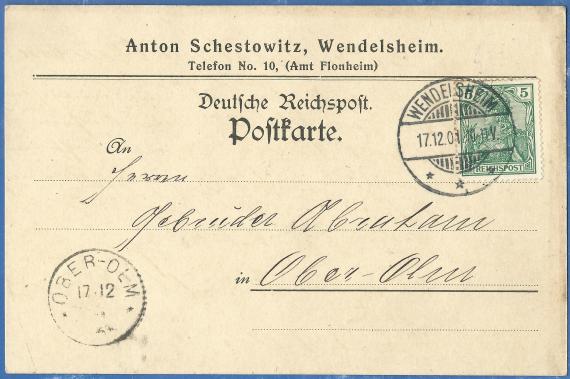 Anton Schestowitz, Wendelsheim.
Telefon No. 10, (Amt Flonheim)
Deutsche Reichspost.
Postkarte.
An
Herrn
Gebrüder Abraham
in Ober-Olm
WENDELSHEIM
17.12.0
5
REICHSPOST
OBER-OLM
17.12